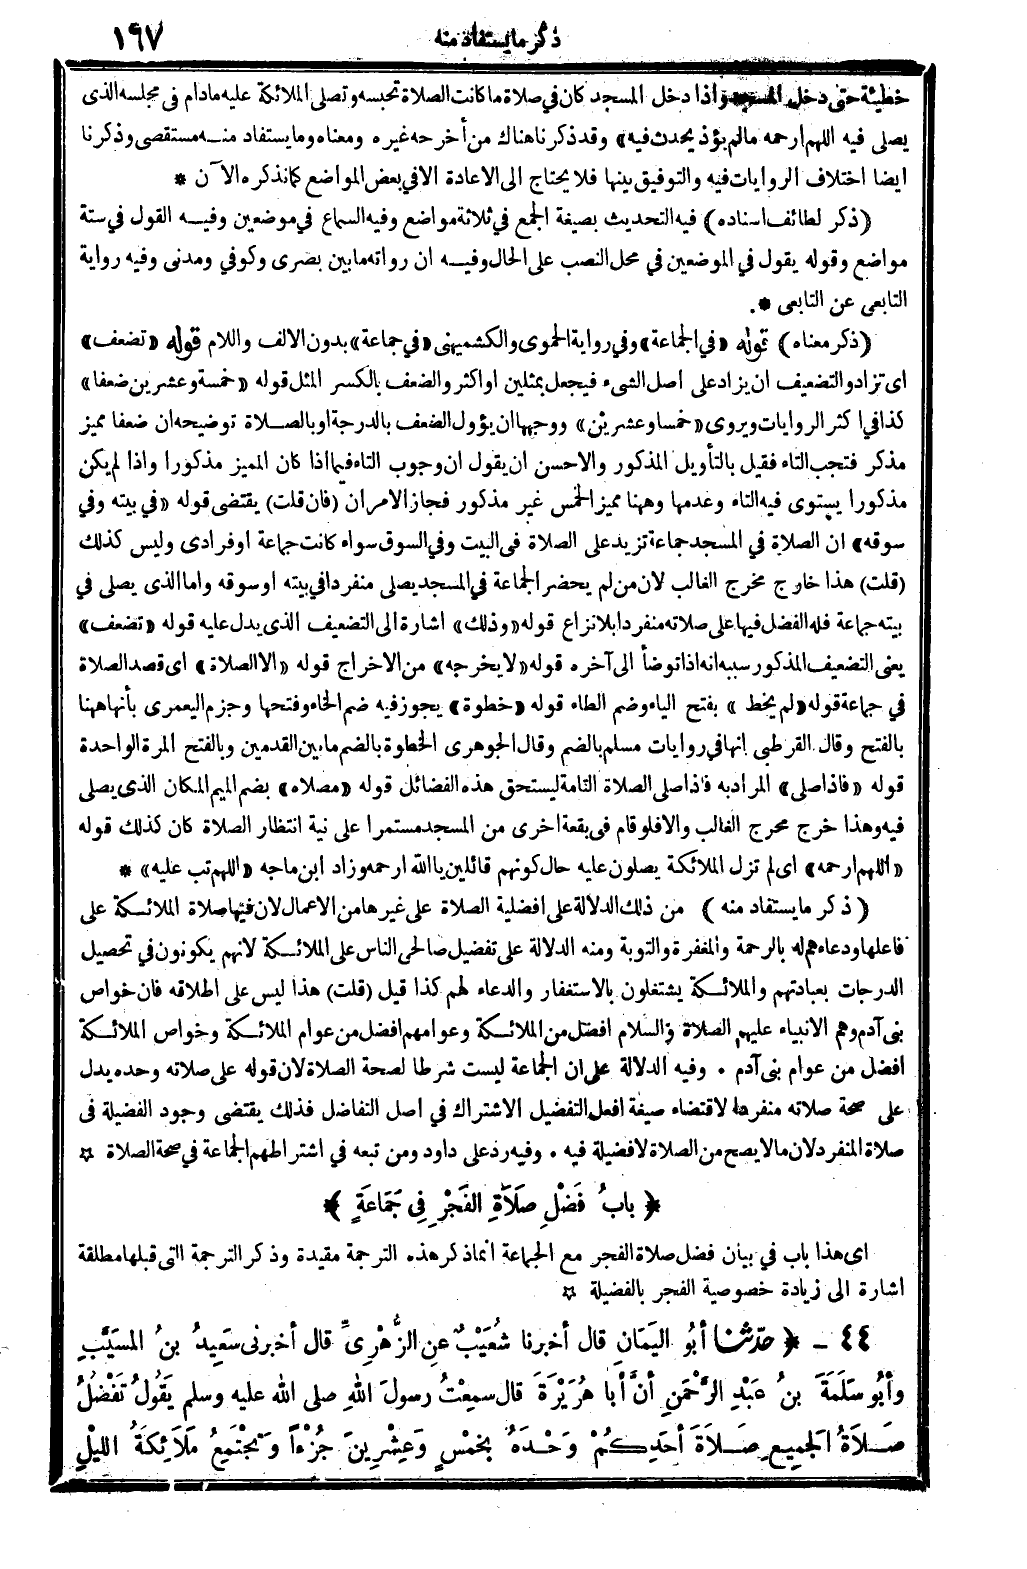 ذكر ما يستفاد منه ١٦٧
خطيئة حتى دخل المسجد واذا دخل المسجد كان في صلاة ما كانت الصلاة تحبسه وتصلى الملائكة عليه مادام فى مجلسه الذى
يصلى فيه اللهم ارحمه مالم يؤذ يحدث فيه» وقد ذكرنا هناك من أخرجه غيره ومعناه وما يستفاد منه مستقصى وذكرنا
ايضا اختلاف الروايات فيه والتوفيق بينها فلا يحتاج الى الاعادة الا في بعض المواضع كما نذكره الآن *
(ذكر لطائف اسناده) فيه التحديث بصيغة الجمع في ثلاثة مواضع وفيه السماع في موضعين وفيه القول في ستة
مواضع وقوله يقول في الموضعين في محل النصب على الحال وفيه ان رواته ما بين بصرى وكوفي ومدنى وفيه رواية
التابعى عن التابعى *.
(ذكر معناه) قوله «في الجماعة» وفي رواية الحموى والكشميهنى «في جماعة» بدون الالف واللام قوله «تضعف»
اى تزاد والتضعيف ان يزاد على اصل الشىء فيجعل بمثلين او اكثر والضعف بالكسر المثل قوله «خمسة وعشرين ضعفا»
كذا في اكثر الروايات ويروى «خمسا وعشرين» ووجهها ان يؤول الضعف بالدرجة او بالصلاة توضيحه ان ضعفا مميز
مذكر فتجب التاء فقيل بالتأويل المذكور والاحسن ان يقول ان وجوب التاء فيما اذا كان المميز مذكورا واذا لم يكن
مذكورا يستوى فيه التاء وعدمها وههنا مميز الخمس غير مذكور فجاز الامران (فان قلت) يقتضى قوله «في بيته وفي
سوقه» ان الصلاة في المسجد جماعة تزيد على الصلاة فى البيت وفي السوق سواء كانت جماعة او فرادى وليس كذلك
(قلت) هذا خارج مخرج الغالب لان من لم يحضر الجماعة في المسجد يصلى منفردا في بيته او سوقه واما الذى يصلى في
بيته جماعة فله الفضل فيها على صلاته منفردا بلا نزاع قوله «وذلك» اشارة الى التضعيف الذى يدل عليه قوله «تضعف»
يعنى التضعيف المذكور سببه انه اذا توضأ الى آخره قوله «لا يخرجه» من الاخراج قوله «الا الصلاة» اى قصد الصلاة
في جماعة قوله «لم يخط» بفتح الياء وضم الطاء قوله «خطوة» يجوز فيه ضم الخاء وفتحها وجزم اليعمرى بأنها ههنا
بالفتح وقال القرطبى انها في روايات مسلم بالضم وقال الجوهرى الخطوة بالضم ما بين القدمين وبالفتح المرة الواحدة
قوله «فاذا صلى» المراد به فاذا صلى الصلاة التامة ليستحق هذه الفضائل قوله «مصلاه» بضم الميم المكان الذى يصلى
فيه وهذا خرج مخرج الغالب والا فلو قام فى بقعة اخرى من المسجد مستمرا على نية انتظار الصلاة كان كذلك قوله
«اللهم ارحمه» اى لم تزل الملائكة يصلون عليه حال كونهم قائلين يا الله ارحمه وزاد ابن ماجه «اللهم تب عليه» *
(ذكر ما يستفاد منه) من ذلك الدلالة على افضلية الصلاة على غيرها من الاعمال لان فيها صلاة الملائكة على
فاعلها ودعاءهم له بالرحمة والمغفرة والتوبة ومنه الدلالة على تفضيل صالحى الناس على الملائكة لانهم يكونون في تحصيل
الدرجات بعبادتهم والملائكة يشتغلون بالاستغفار والدعاء لهم كذا قيل (قلت) هذا ليس على اطلاقه فان خواص
بنى آدم وهم الانبياء عليهم الصلاة والسلام افضل من الملائكة وعوامهم افضل من عوام الملائكة وخواص الملائكة
افضل من عوام بنى آدم . وفيه الدلالة على ان الجماعة ليست شرطا لصحة الصلاة لان قوله على صلاته وحده يدل
على صحة صلاته منفردا لاقتضاء صيغة افعل التفضيل الاشتراك في اصل التفاضل فذلك يقتضى وجود الفضيلة فى
صلاة المنفرد لان ما لا يصح من الصلاة لا فضيلة فيه . وفيه رد على داود ومن تبعه في اشتراطهم الجماعة في صحة الصلاة *
﴿ بابُ فَضْلِ صَلَاةِ الفَجْرِ فِى جَمَاعَةٍ ﴾
اى هذا باب في بيان فضل صلاة الفجر مع الجماعة انما ذكر هذه الترجمة مقيدة وذكر الترجمة التى قبلها مطلقة
اشارة الى زيادة خصوصية الفجر بالفضيلة *
٤٤ - ﴿ حدّثنا أبُو اليَمَانِ قال أخبرنا شُعَيْبٌ عنِ الزُّهْرِىِّ قال أخبرنى سَعِيدُ بنُ المُسَيَّبِ
وأبُو سَلَمَةَ بنُ عَبْدِ الرَّحْمَنِ أنَّ أبا هُرَيْرَةَ قال سَمِعْتُ رسولَ اللهِ صلى الله عليه وسلم يَقُولُ تَفْضُلُ
صَلَاةُ الجَمِيعِ صَلَاةَ أحَدِكُمْ وَحْدَهُ بخَمْسٍ وَعِشْرِينَ جُزْءًا وَتَجْتَمِعُ مَلَائِكَةُ الليْلِ